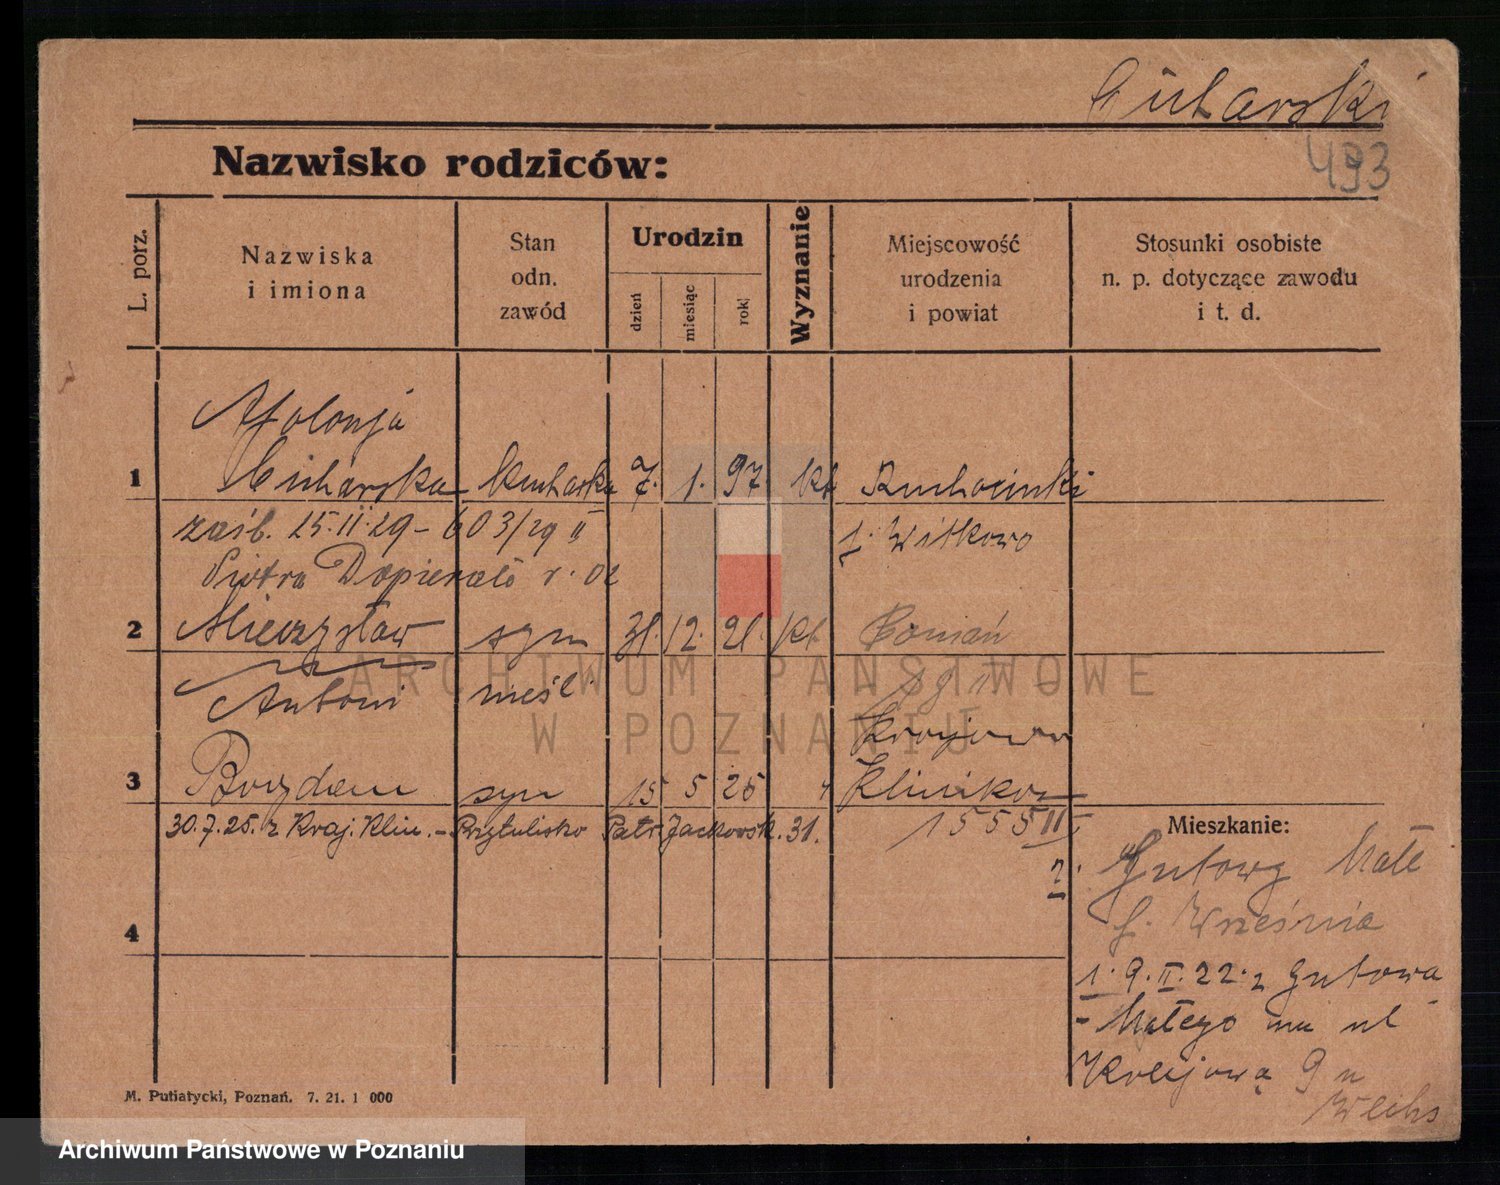 Cicharski
493
Nazwisko rodziców:
L. porz.
Nazwiska
i imiona
Stan
odn.
zawód
Urodzin
dzień
miesiąc
rok
Wyznanie
Miejscowość
urodzenia
i powiat
Stosunki osobiste
n. p. dotyczące zawodu
i t. d.
Apolonja
1 Cicharska kucharka 7. 1. 97. kt Ruchocinki
zaśl. 25.II.29 - 603/29 II
p. Witkowo
Piotra Dopierała r. 02
2 Mieczysław syn 31. 12. 21. kt. Poznań
Antoni nieśl.
Krajowa
3 Bogdan syn 15 5 25 " Klinika
1555 II
30.7.25. z Kraj. Klin. - Przytulisko Patr. Jackowsk. 31.
4
Mieszkanie:
2. Gutowy Małe
p. Września
1. 9.II.22. z Gutowa
- Małego na ul
Krajową 9 u
M. Putiatycki, Poznań. 7. 21. 1 000
ARCHIWUM PAŃSTWOWE
W POZNANIU
Archiwum Państwowe w Poznaniu